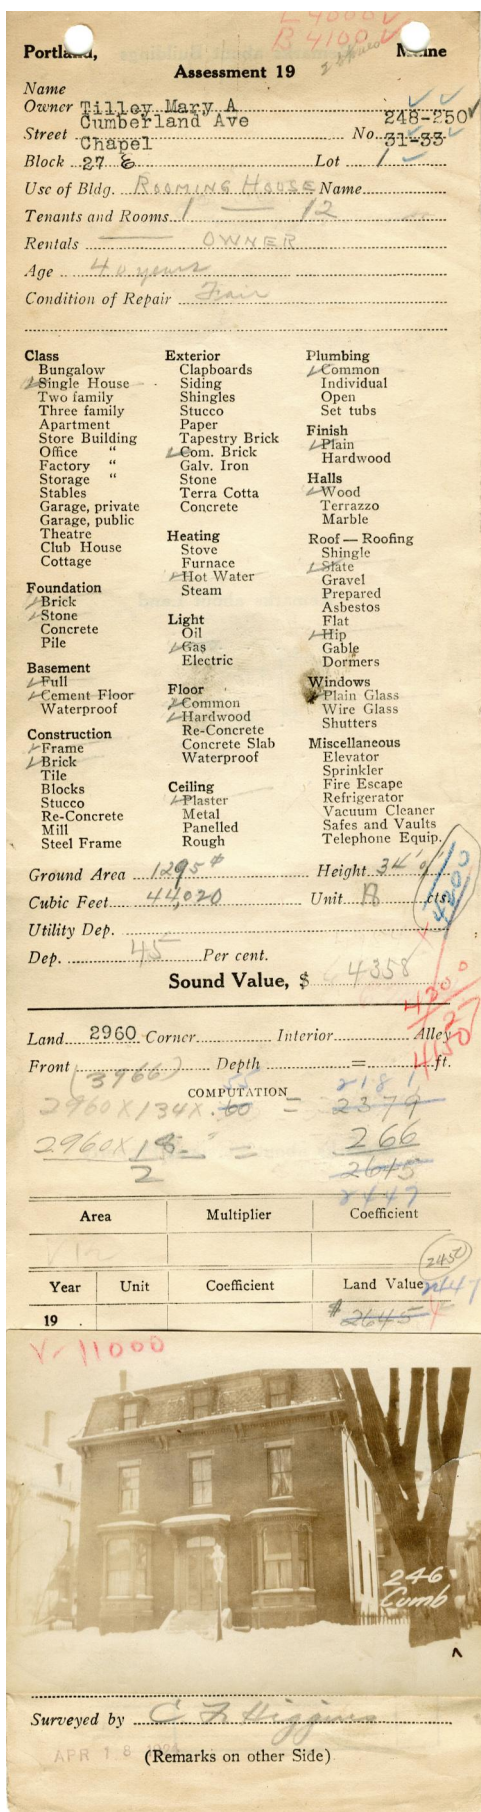 L 4000 ✓
B 4100 ✓
Portland, Maine
Assessment 19
Name
Owner Tilley Mary A
Cumberland Ave 248-250 ✓
Street Chapel No. 31-33
Block 27 E Lot 1
Use of Bldg. ROOMING HOUSE Name
Tenants and Rooms 1 — 12
Rentals — OWNER
Age 40 years
Condition of Repair Fair
Class
Bungalow
✓ Single House
Two family
Three family
Apartment
Store Building
Office "
Factory "
Storage "
Stables
Garage, private
Garage, public
Theatre
Club House
Cottage
Foundation
✓ Brick
✓ Stone
Concrete
Pile
Basement
✓ Full
✓ Cement Floor
Waterproof
Construction
✓ Frame
✓ Brick
Tile
Blocks
Stucco
Re-Concrete
Mill
Steel Frame
Exterior
Clapboards
Siding
Shingles
Stucco
Paper
Tapestry Brick
✓ Com. Brick
Galv. Iron
Stone
Terra Cotta
Concrete
Heating
Stove
Furnace
✓ Hot Water
Steam
Light
Oil
✓ Gas
Electric
Floor
✓ Common
✓ Hardwood
Re-Concrete
Concrete Slab
Waterproof
Ceiling
✓ Plaster
Metal
Panelled
Rough
Plumbing
✓ Common
Individual
Open
Set tubs
Finish
✓ Plain
Hardwood
Halls
✓ Wood
Terrazzo
Marble
Roof — Roofing
Shingle
✓ Slate
Gravel
Prepared
Asbestos
Flat
✓ Hip
Gable
Dormers
Windows
✓ Plain Glass
Wire Glass
Shutters
Miscellaneous
Elevator
Sprinkler
Fire Escape
Refrigerator
Vacuum Cleaner
Safes and Vaults
Telephone Equip.
Ground Area 1295 Height 34'
Cubic Feet 44,020 Unit 18 cts.
4200
Utility Dep.
Dep. 45 Per cent.
Sound Value, $ 4358
Land 2960 Corner Interior Alley
Front Depth = ft.
(3966)
COMPUTATION
55 2181
2960 X 134 X .60 = 2379
2960 X 18 = 266
2 2645
2447
Area Multiplier Coefficient
Year Unit Coefficient Land Value
2450
2447
19 $ 2645
V-11000
246
Comb
Surveyed by C F Higgins
APR 18
(Remarks on other Side)